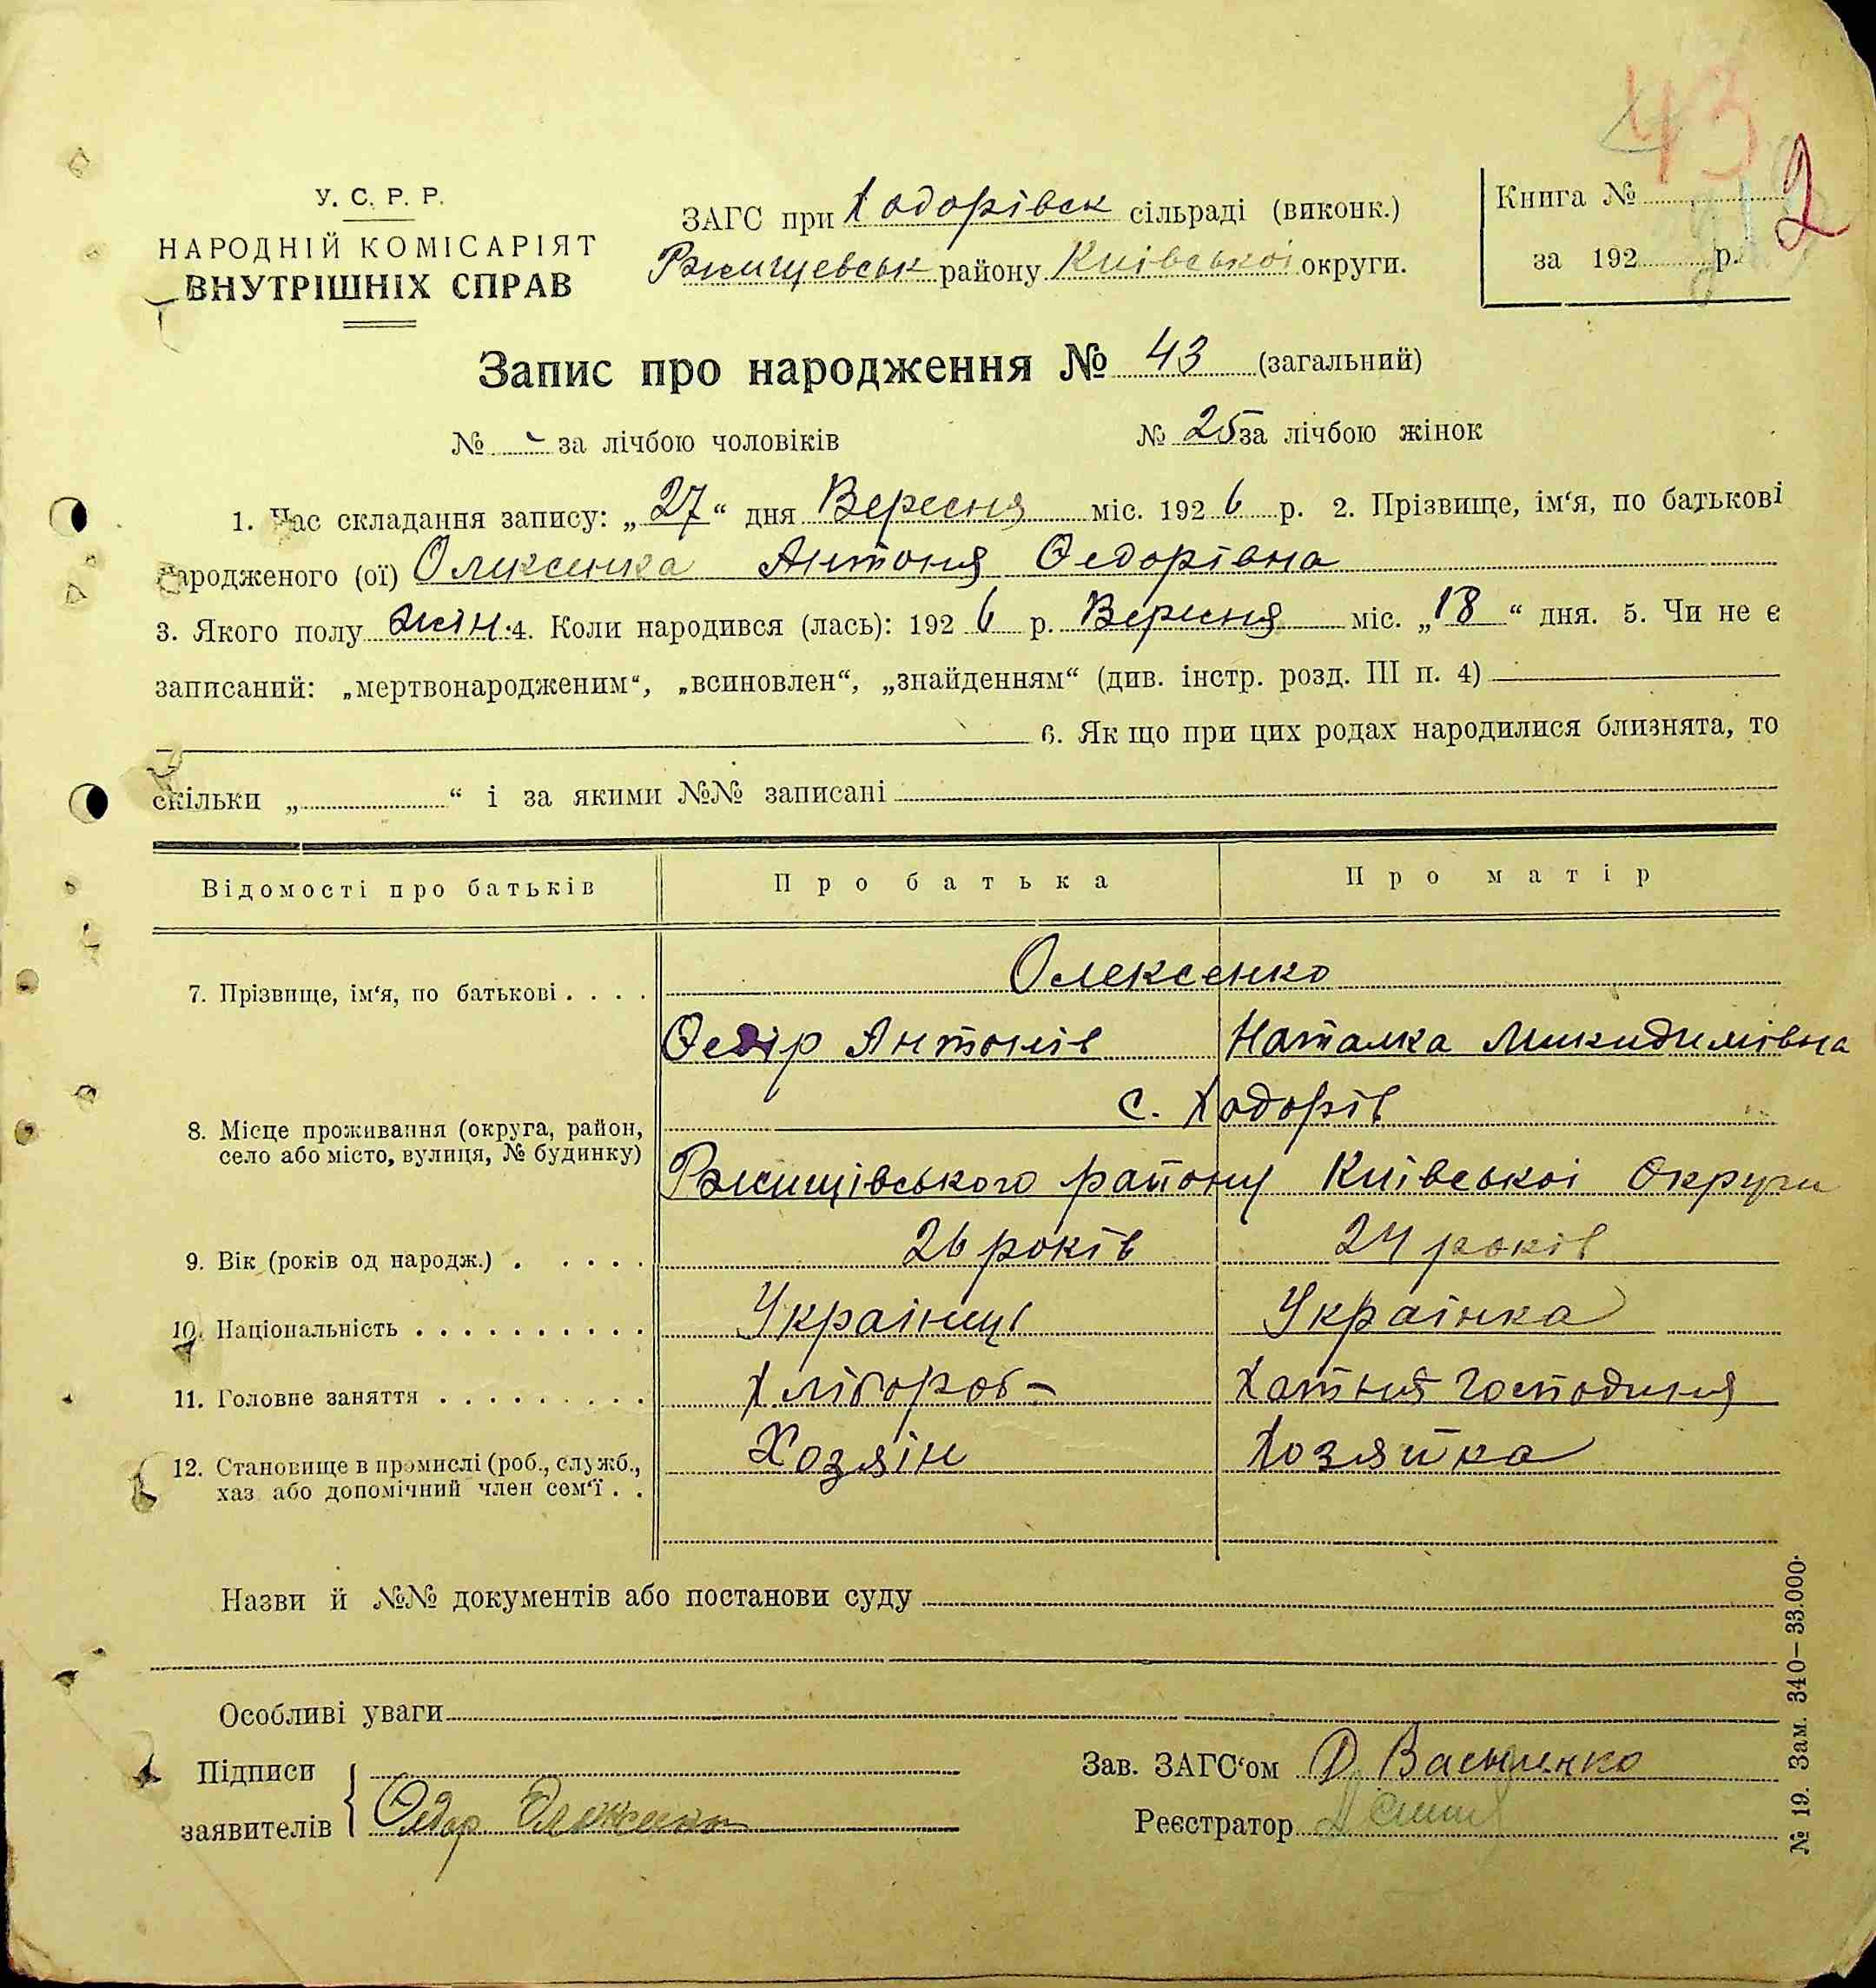 43
2
У. С. Р. Р.
НАРОДНІЙ КОМІСАРІЯТ
ВНУТРІШНІХ СПРАВ
ЗАГС при Ходорівск сільраді (виконк.)
Ржищевськ району Київської округи.
Книга №
за 192 р.
Запис про народження № 43 (загальний)
№ - за лічбою чоловіків № 25 за лічбою жінок
1. Час складання запису: „27“ дня Вересня міс. 1926 р. 2. Прізвище, ім‘я, по батькові
народженого (ої) Олексенка Антоня Федорівна
3. Якого полу жін. 4. Коли народився (лась): 1926 р. Вересня міс. „18“ дня. 5. Чи не є
записаний: „мертвонародженим“, „всиновлен“, „знайденням“ (див. інстр. розд. III п. 4)
6. Як що при цих родах народилися близнята, то
скільки „ “ і за якими №№ записані
Відомості про батьків Про батька Про матір
Олексенко
7. Прізвище, ім‘я, по батькові . . . .
Федір Антонів Наталка Микидимівна
с. Ходорів
8. Місце проживання (округа, район,
село або місто, вулиця, № будинку)
Ржищівського району Київської Округи
9. Вік (років од народж.) . . . . . 26 років 24 років
10. Національність . . . . . . . . . . Українці Українка
11. Головне заняття . . . . . . . . . Хлібороб- Хатня Господиня
12. Становище в промислі (роб., служб., Хозяін Хозяйка
хаз або допомічний член сем‘ї . .
Назви й №№ документів або постанови суду
Особливі уваги
Підписи
заявителів Федор Олексенко
Зав. ЗАГС‘ом Д Василенко
Реєстратор
№ 19. Зам. 340—33.000.